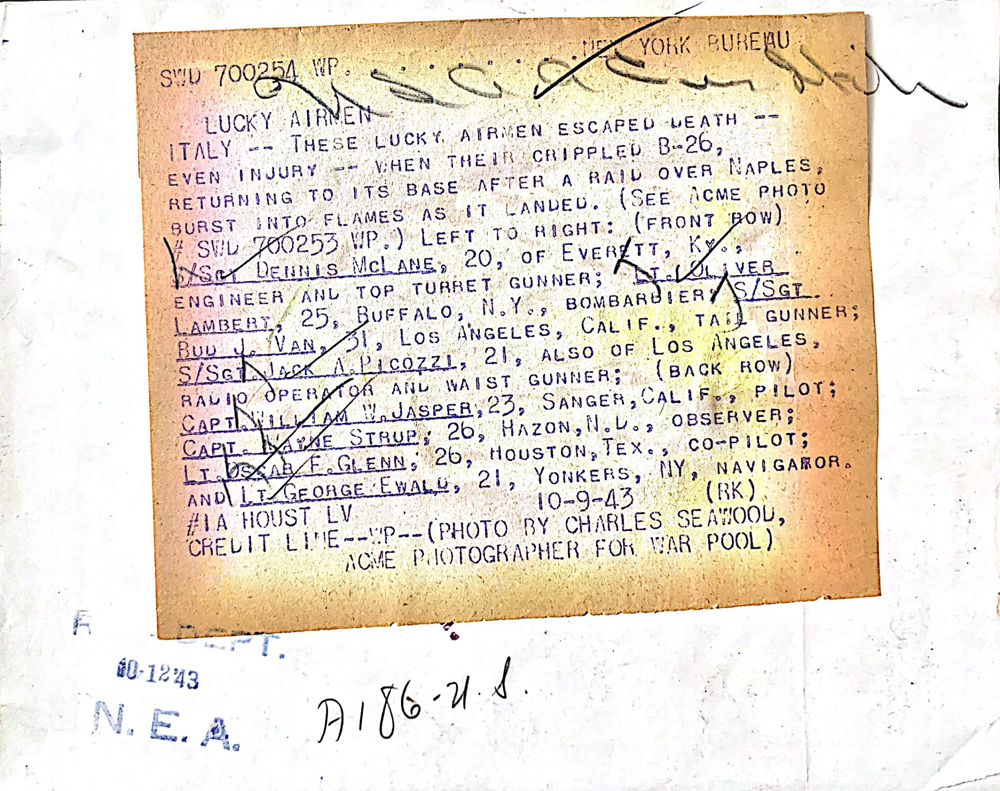 NEW YORK BUREAU
SWD 700254 WP.
LUCKY AIRMEN
ITALY -- THESE LUCKY AIRMEN ESCAPED DEATH --
EVEN INJURY -- WHEN THEIR CRIPPLED B-26,
RETURNING TO ITS BASE AFTER A RAID OVER NAPLES,
BURST INTO FLAMES AS IT LANDED. (SEE ACME PHOTO
# SWD 700253 WP.) LEFT TO RIGHT: (FRONT ROW)
S/SGT DENNIS MCLANE, 20, OF EVERETT, KY.,
ENGINEER AND TOP TURRET GUNNER; LT. OLIVER
LAMBERT, 25, BUFFALO, N.Y., BOMBARDIER; S/SGT
BUD J. VAN, 31, LOS ANGELES, CALIF., TAIL GUNNER;
S/SGT. JACK A. PICOZZI, 21, ALSO OF LOS ANGELES,
RADIO OPERATOR AND WAIST GUNNER; (BACK ROW)
CAPT. WILLIAM W. JASPER, 23, SANGER, CALIF., PILOT;
CAPT. WAYNE STRUP, 26, HAZON, N.D., OBSERVER;
LT. OSCAR F. GLENN, 26, HOUSTON, TEX., CO-PILOT;
AND LT. GEORGE EWALD, 21, YONKERS, NY, NAVIGATOR.
10-9-43 (RK)
#1A HOUST LV
CREDIT LINE--WP--(PHOTO BY CHARLES SEAWOOD,
ACME PHOTOGRAPHER FOR WAR POOL)
DEPT.
10-12 43
N. E. A.
A186-U.S.